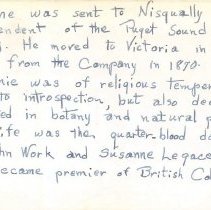 ne was sent to Nisqually
endent of the Puget Sound
. He moved to Victoria in
from the Company in 1870.
mie was of religious temper
to introspection, but also dee
ed in botany and natural p
ife was the quarter-blood da
hn Work and Susanne Legace
ecame premier of British Col